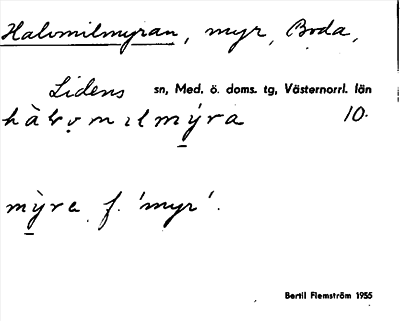 Halvmilmyran, myr, Boda,
Lidens sn, Med. ö. doms. tg, Västernorrl. län
hàlvmilmýra 10.
mỳra f. 'myr'.
Bertil Flemström 1955